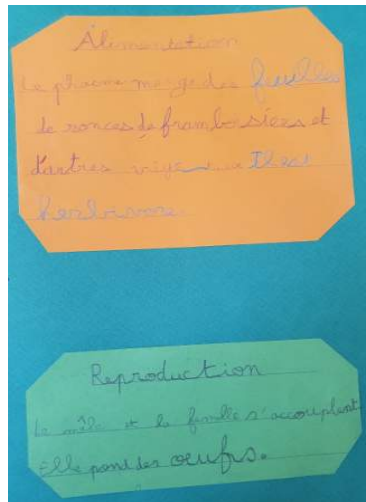 Alimentation
Le phasme mange des feuilles
de ronces de framboisiers et
d'autres il est
herbivore.
Reproduction
Le mâle et la femelle s'accouplent
Elle pond des oeufs.